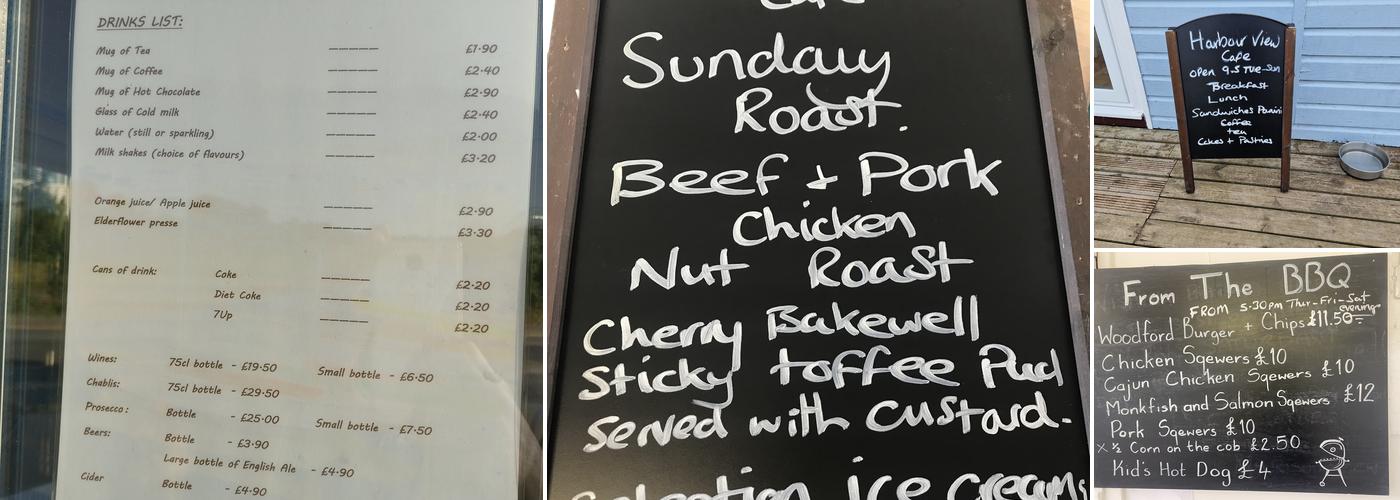 DRINKS LIST:
Mug of Tea —————— £1.90
Mug of Coffee —————— £2.40
Mug of Hot Chocolate —————— £2.90
Glass of Cold milk —————— £2.40
Water (still or sparkling) —————— £2.00
Milk shakes (choice of flavours) —————— £3.20
Orange juice/ Apple juice —————— £2.90
Elderflower presse —————— £3.30
Cans of drink: Coke —————— £2.20
Diet Coke —————— £2.20
7Up —————— £2.20
Wines: 75cl bottle - £19.50 Small bottle - £6.50
Chablis: 75cl bottle - £29.50
Prosecco: Bottle - £25.00 Small bottle - £7.50
Beers: Bottle - £3.90
Large bottle of English Ale - £4.90
Cider Bottle - £4.90
Cafe
Sunday
Roast.
Beef + Pork
Chicken
Nut Roast
Cherry Bakewell
Sticky toffee Pud
Served with custard.
Selection ice creams
Harbour View
Cafe
Open 9-5 Tue-Sun
Breakfast
Lunch
Sandwiches Panini
Coffee
tea
Cakes + Pastries
From The BBQ
FROM 5.30pm Thur-Fri-Sat
evening
Woodford Burger + Chips £11.50
Chicken Sqewers £10
Cajun Chicken Sqewers £10
Monkfish and Salmon Sqewers £12
Pork Sqewers £10
x ½ Corn on the cob £2.50
Kid's Hot Dog £4